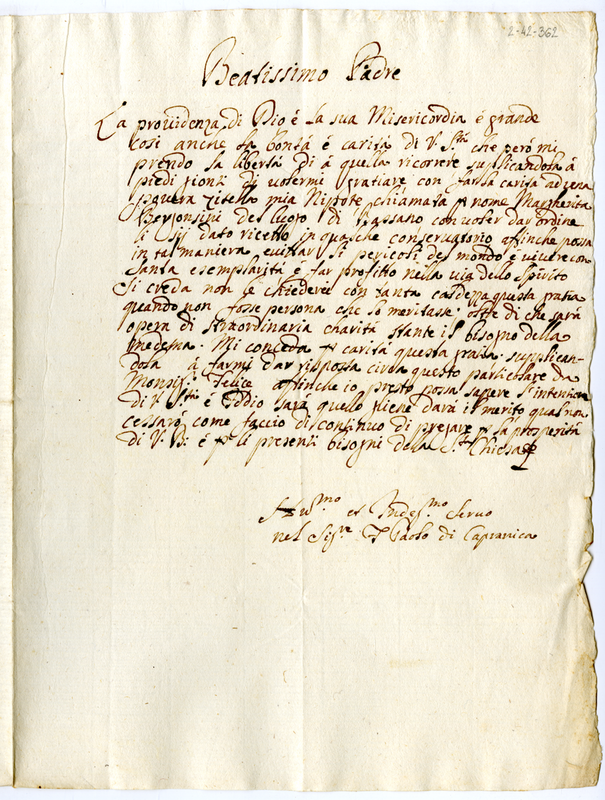 2-42-362
Beatissimo Padre
La providenza di Dio é la sua Misericordia é grande
cosi anche la bontá é caritá di V. Stá che peró mi
prendo la libertá di á quella ricorrere supplicandola á
piedi di volermi gratiare con farla caritá ad una
povera zitella mia Nipote chiamata p nome Margherita
del luogo di Bassano con voler dar ordine
li sij dato ricetto in qualche conservatorio affinche possa
in tal maniera evittar li pericoli del mondo é vivere con
santa esemplaritá é far profitto nella via dello Spirito
Si creda non le chiederei con tanta caldezza questa gratia
quando non fosse persona che lo meritasse oltre di che sará
opera di straordinaria charitá stante il bisogno della
medema. Mi conceda p caritá questa gratia supplican-
dola á farmi dar risposta circa questo particolare da
Monsigr Felice affinche io presto possa sapere l'intentione
di V. Stá é Iddio sará quello gliene dará il merito qual non
cessaró come faccio di continuo di pregare p la prosperitá
di V. B. é p li presenti bisogni della S.ta Chiesa
Humo et Indegmo Servo
nel Sigre F Paolo di Capranica